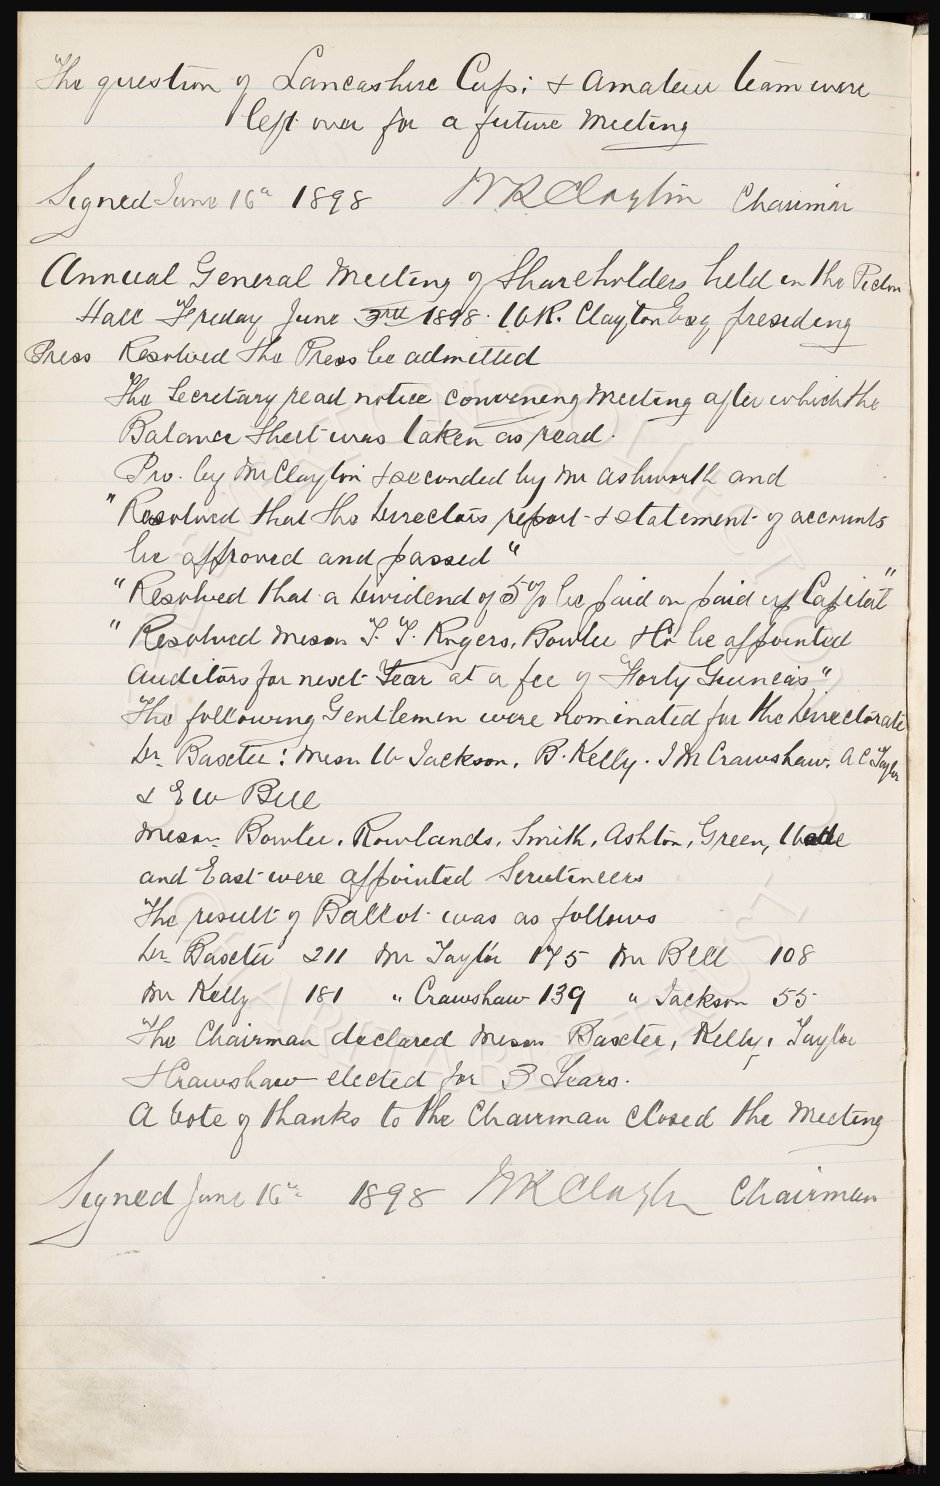 The question of Lancashire Cup; & Amateur team were
left over for a future Meeting
Signed June 16th 1898 W R Clayton Chairman
Annual General Meeting of Shareholders held in the Picton
Hall Friday June 3rd 1898. W.R. Clayton Esq presiding
Press Resolved the Press be admitted
The Secretary read notice convening Meeting after which the
Balance Sheet was taken as read.
Pro. by Mr Clayton & seconded by Mr Ashworth and
"Resolved that the Directors report & statement of accounts
be approved and passed"
"Resolved that a Dividend of 5% be paid on paid up Capital"
"Resolved Messrs T. T. Rogers, Bowler & Co be appointed
Auditors for next Year at a fee of Forty Guineas".
The following Gentlemen were nominated for the Directorate
Dr. Baxter: Messrs W Jackson, B. Kelly. J M Crawshaw. A C Taylor
& E W Bell
Messrs. Bowler, Rowlands, Smith, Ashton, Green,
and East were appointed Scrutineers
The result of Ballot was as follows
Dr. Baxter 211 Mr Taylor 175 Mr Bell 108
Mr Kelly 181 " Crawshaw 139 " Jackson 55
The Chairman declared Messrs Baxter, Kelly, Taylor
& Crawshaw elected for 3 Years.
A Vote of thanks to the Chairman closed the Meeting
Signed June 16th 1898 W R Clayton Chairman